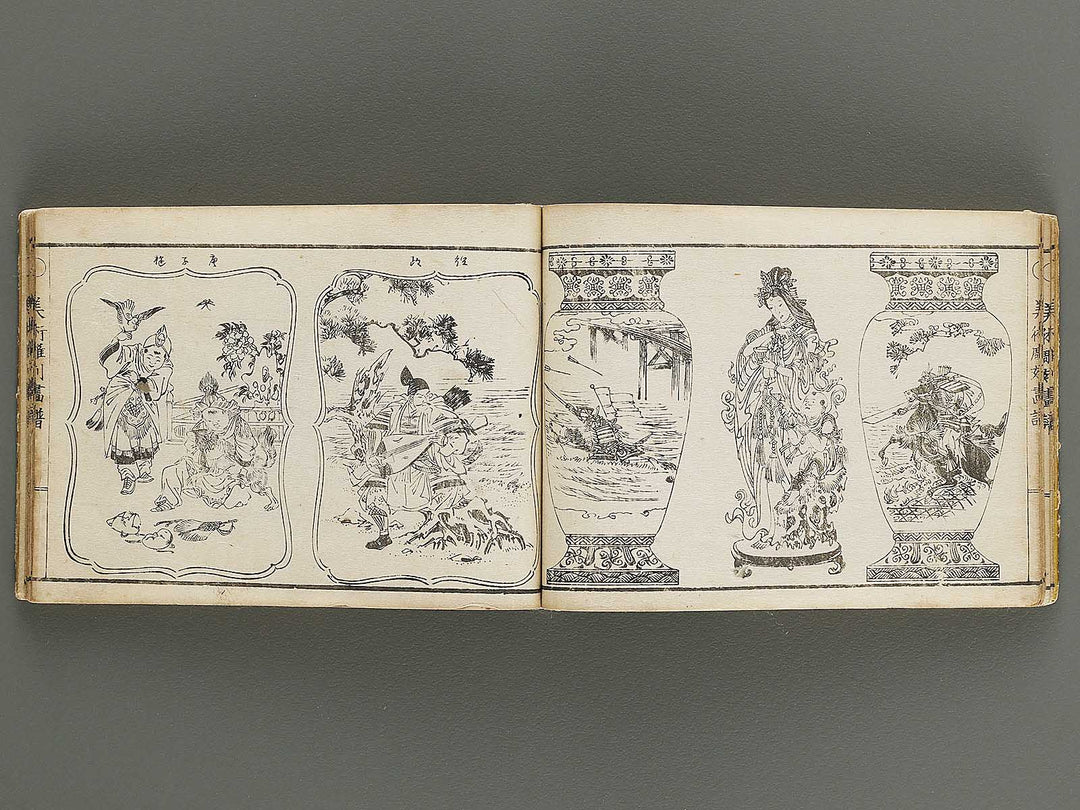 美術雕刻畫譜
唐子遊
美術雕刻畫譜